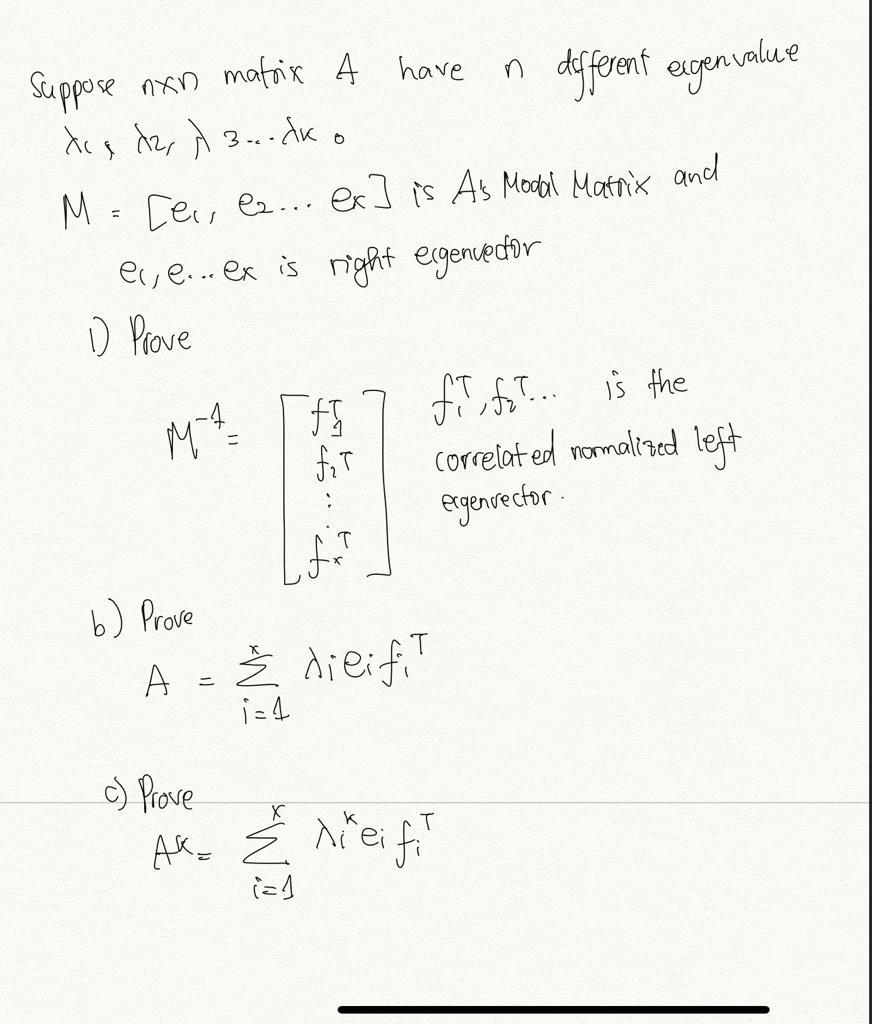 Suppose n×n matrix A have n different eigenvalue
λ1, λ2, λ3...λx.
M = [e1, e2... ex] is A's Modal Matrix and
e1, e...ex is right eigenvector
1) Prove
M⁻¹ = [f1ᵀ f2ᵀ ⋮ fxᵀ]
f1ᵀ, f2ᵀ... is the
correlated normalized left
eigenvector.
b) Prove
A = Σ_{i=1}^{x} λi ei fiᵀ
c) Prove
Aᴷ = Σ_{i=1}^{x} λiᴷ ei fiᵀ